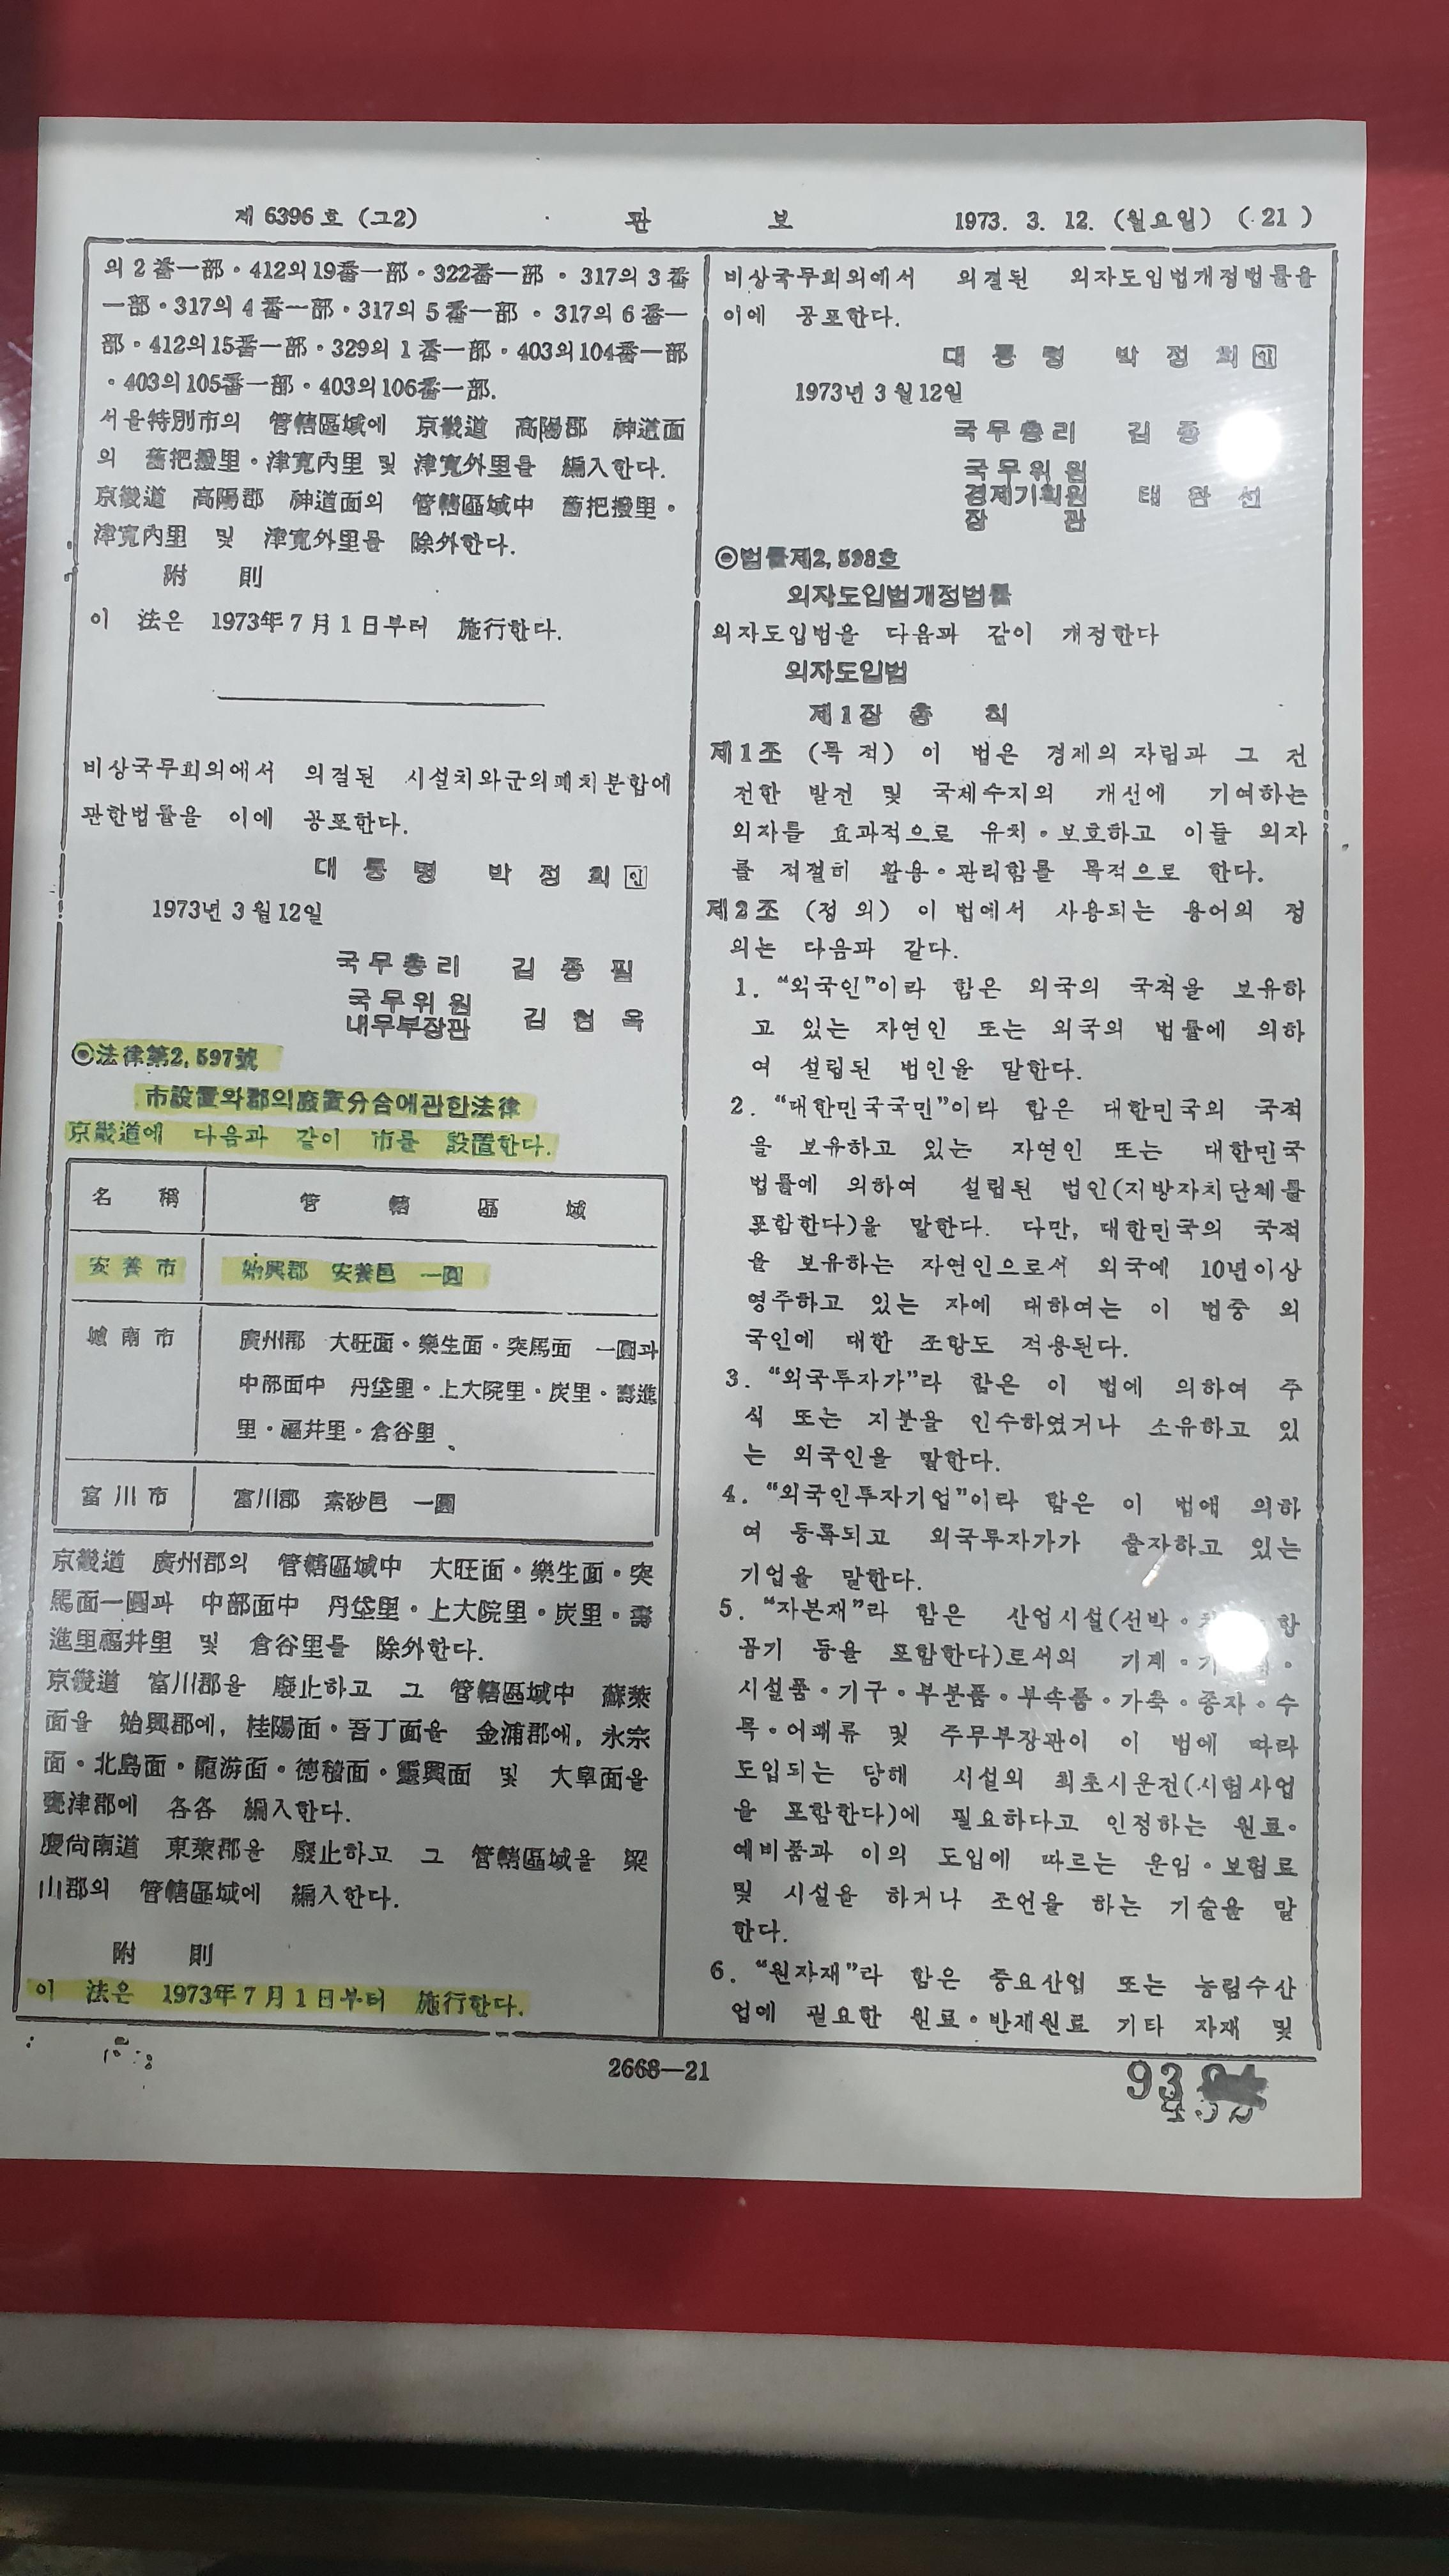 제 6396 호 (그2) 관 보 1973. 3. 12. (월요일) ( 21 )
의 2 番一部·412의19番一部·322番一部·317의 3 番
一部·317의 4 番一部·317의 5 番一部·317의 6 番一
部·412의15番一部·329의 1 番一部·403의104番一部
·403의105番一部·403의106番一部.
서울特別市의 管轄區域에 京畿道 高陽郡 神道面
의 舊把撥里·津寬內里 및 津寬外里를 編入한다.
京畿道 高陽郡 神道面의 管轄區域中 舊把撥里·
津寬內里 및 津寬外里를 除外한다.
附 則
이 法은 1973年 7 月 1 日부터 施行한다.
비상국무회의에서 의결된 시설치와군의폐치분합에
관한법률을 이에 공포한다.
대 통 령 박 정 희 인
1973년 3 월12일
국 무 총 리 김 종 필
국 무 위 원
내무부장관 김 현 옥
◎法律第2,597號
市設置와郡의廢置分合에관한法律
京畿道에 다음과 같이 市를 設置한다.
名 稱 管 轄 區 域
安 養 市 始興郡 安養邑 一圓
城 南 市 廣州郡 大旺面·樂生面·突馬面 一圓과
中部面中 丹垈里·上大院里·炭里·壽進
里·福井里·倉谷里
富 川 市 富川郡 素砂邑 一圓
京畿道 廣州郡의 管轄區域中 大旺面·樂生面·突
馬面一圓과 中部面中 丹垈里·上大院里·炭里·壽
進里福井里 및 倉谷里를 除外한다.
京畿道 富川郡을 廢止하고 그 管轄區域中 蘇萊
面을 始興郡에, 桂陽面·吾丁面을 金浦郡에, 永宗
面·北島面·龍游面·德積面·靈興面 및 大阜面을
甕津郡에 各各 編入한다.
慶尙南道 東萊郡을 廢止하고 그 管轄區域을 梁
山郡의 管轄區域에 編入한다.
附 則
이 法은 1973年 7 月 1 日부터 施行한다.
비상국무회의에서 의결된 외자도입법개정법률을
이에 공포한다.
대 통 령 박 정 희 인
1973년 3 월12일
국 무 총 리 김 종
국 무 위 원
경제기획원 태 완 선
장 관
◎법률제2,598호
외자도입법개정법률
외자도입법을 다음과 같이 개정한다
외자도입법
제 1 장 총 칙
제 1 조 (목 적) 이 법은 경제의 자립과 그 건
전한 발전 및 국제수지의 개선에 기여하는
외자를 효과적으로 유치·보호하고 이들 외자
를 적절히 활용·관리함를 목적으로 한다.
제 2 조 (정 의) 이 법에서 사용되는 용어의 정
의는 다음과 같다.
1. “외국인”이라 함은 외국의 국적을 보유하
고 있는 자연인 또는 외국의 법률에 의하
여 설립된 법인을 말한다.
2. “대한민국국민”이라 함은 대한민국의 국적
을 보유하고 있는 자연인 또는 대한민국
법률에 의하여 설립된 법인(지방자치단체를
포함한다)을 말한다. 다만, 대한민국의 국적
을 보유하는 자연인으로서 외국에 10년이상
영주하고 있는 자에 대하여는 이 법중 외
국인에 대한 조항도 적용된다.
3. “외국투자가”라 함은 이 법에 의하여 주
식 또는 지분을 인수하였거나 소유하고 있
는 외국인을 말한다.
4. “외국인투자기업”이라 함은 이 법에 의하
여 등록되고 외국투자가가 출자하고 있는
기업을 말한다.
5. “자본재”라 함은 산업시설(선박· 항
공기 등을 포함한다)로서의 기계· ·
시설품·기구·부분품·부속품·가축·종자·수
목·어패류 및 주무부장관이 이 법에 따라
도입되는 당해 시설의 최초시운전(시험사업
을 포함한다)에 필요하다고 인정하는 원료·
예비품과 이의 도입에 따르는 운임·보험료
및 시설을 하거나 조언을 하는 기술을 말
한다.
6. “원자재”라 함은 중요산업 또는 농림수산
업에 필요한 원료·반제원료 기타 자재 및
2668—21
93